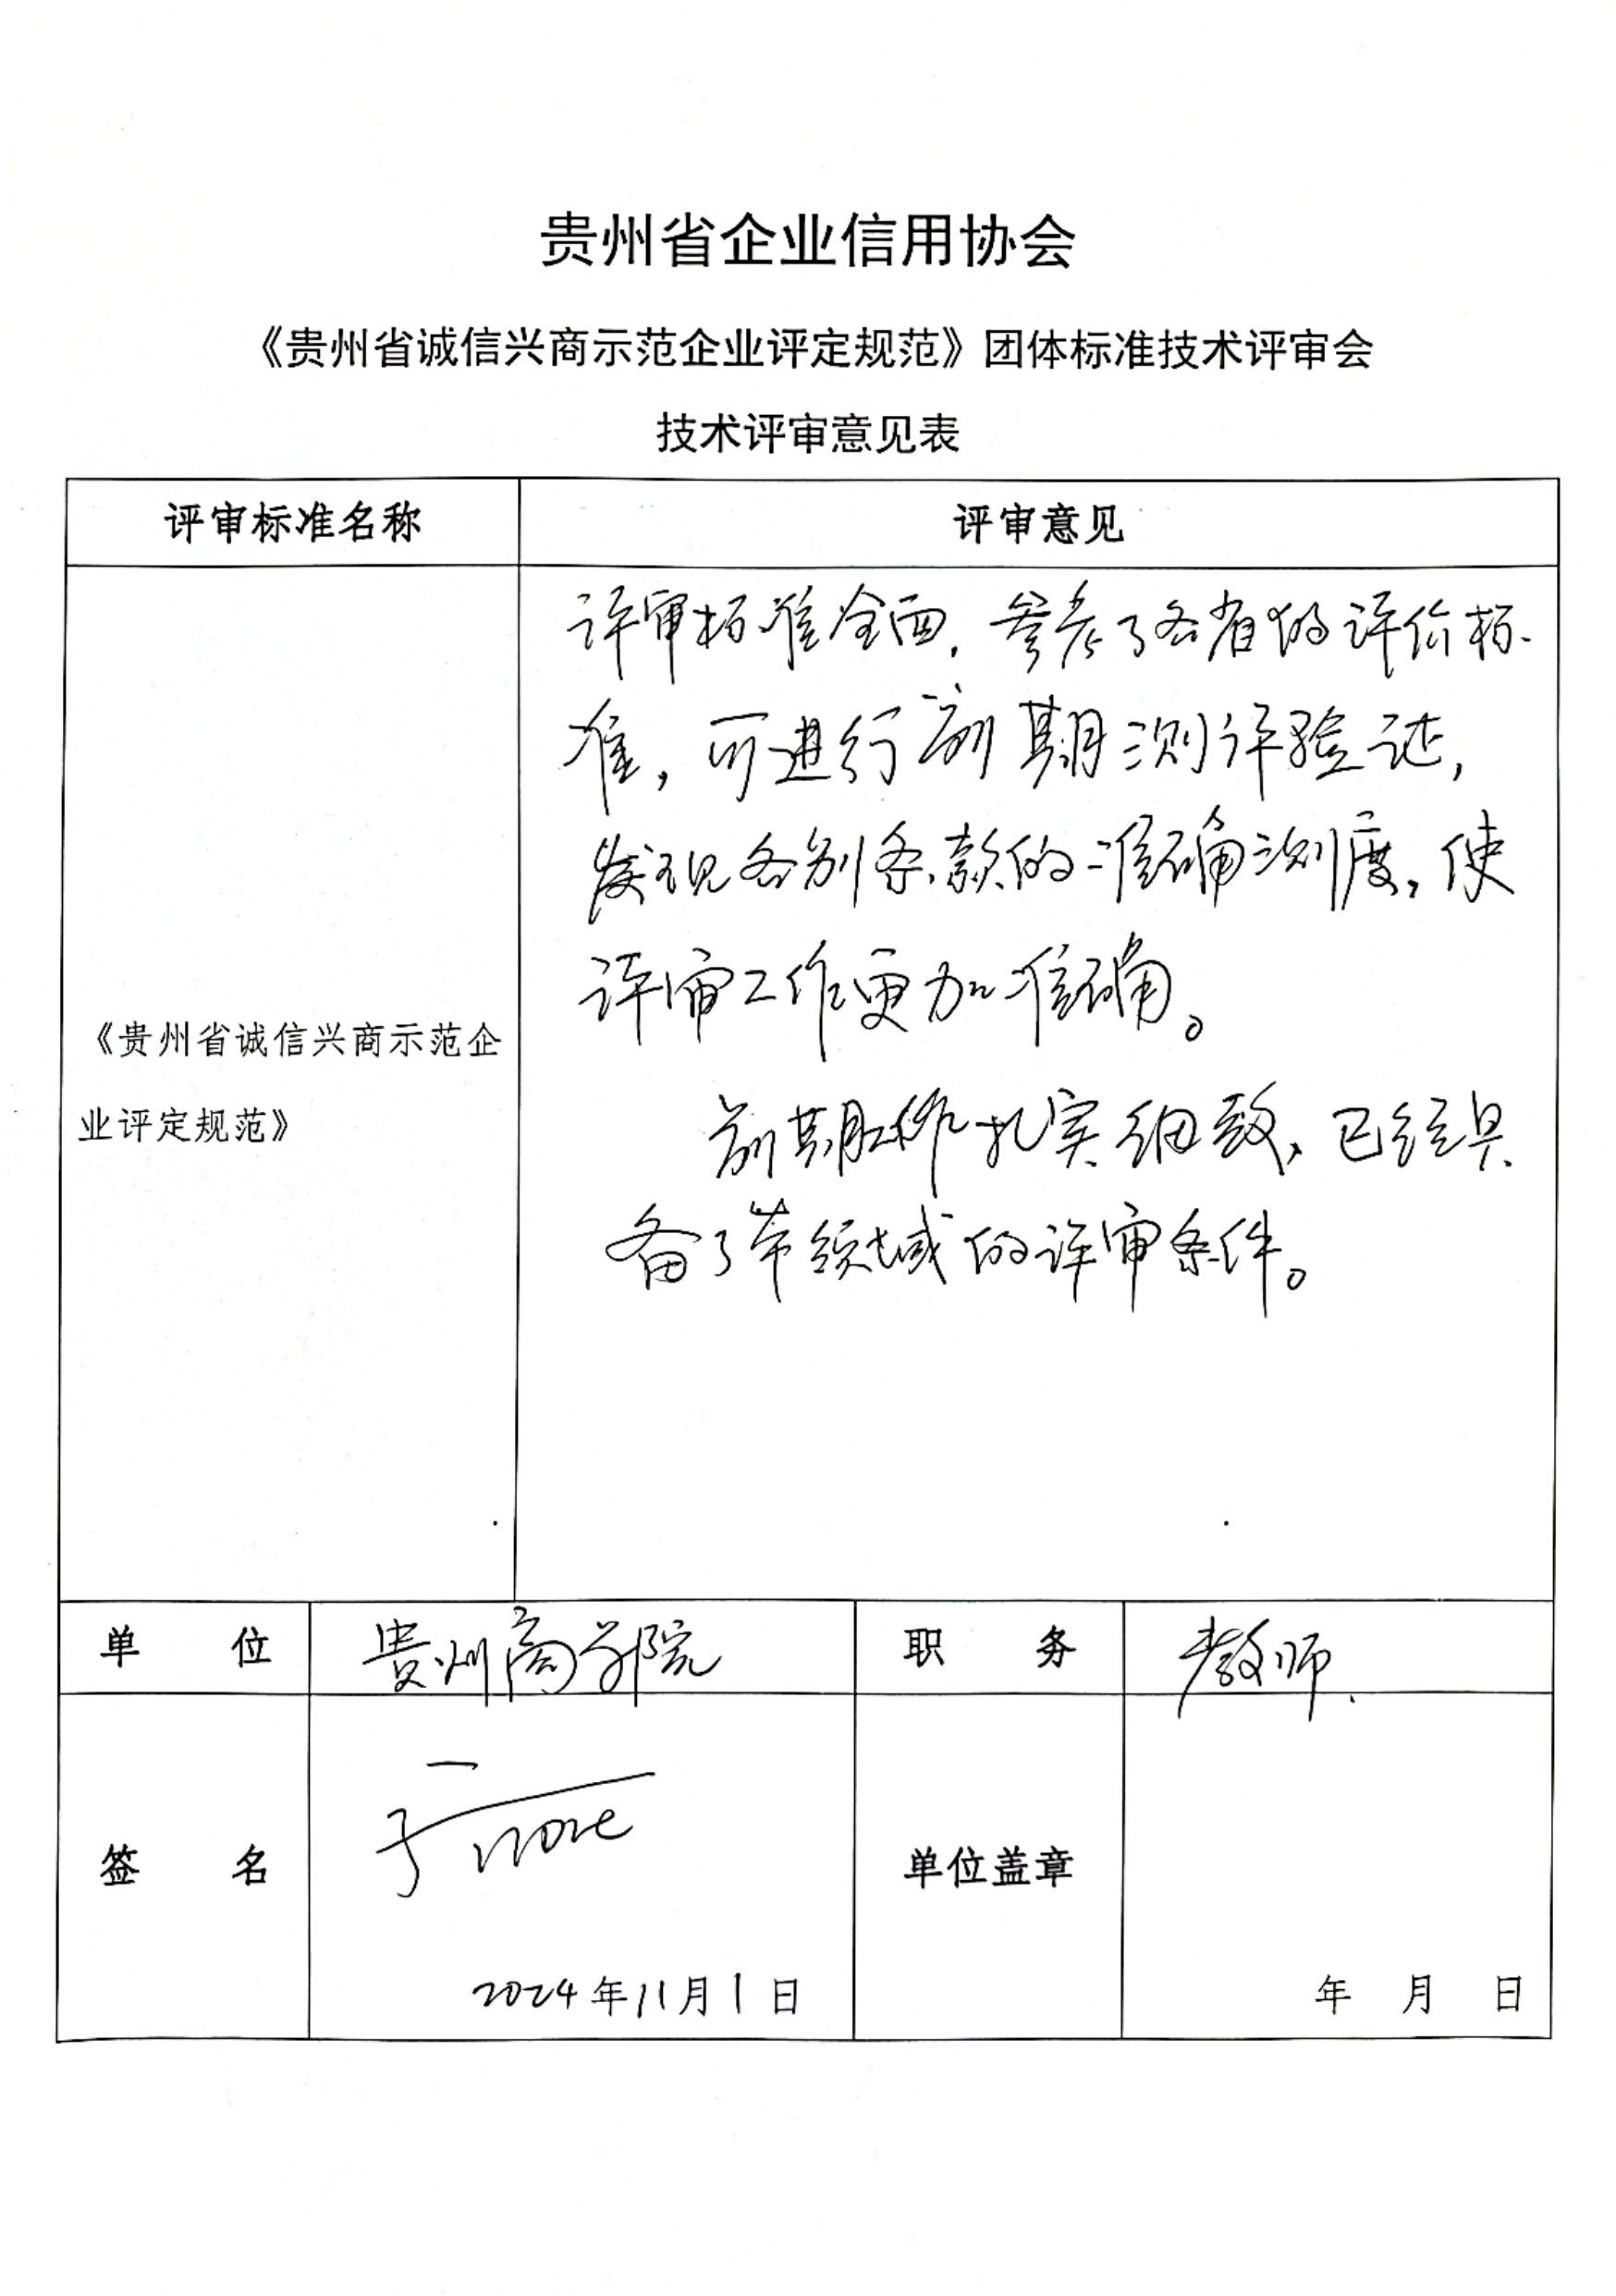 贵州省企业信用协会
《贵州省诚信兴商示范企业评定规范》团体标准技术评审会
技术评审意见表
评审标准名称
评审意见
《贵州省诚信兴商示范企
业评定规范》
评审标准全面，参考了各省的评价标
准，可进行前期测评验证，
发现各别条款的准确测度，使
评审工作更加准确。
前期工作扎实细致，已经具
备了带领域的评审条件。
单 位
贵州商学院
职 务
教师
签 名
2024年11月1日
单位盖章
年 月 日